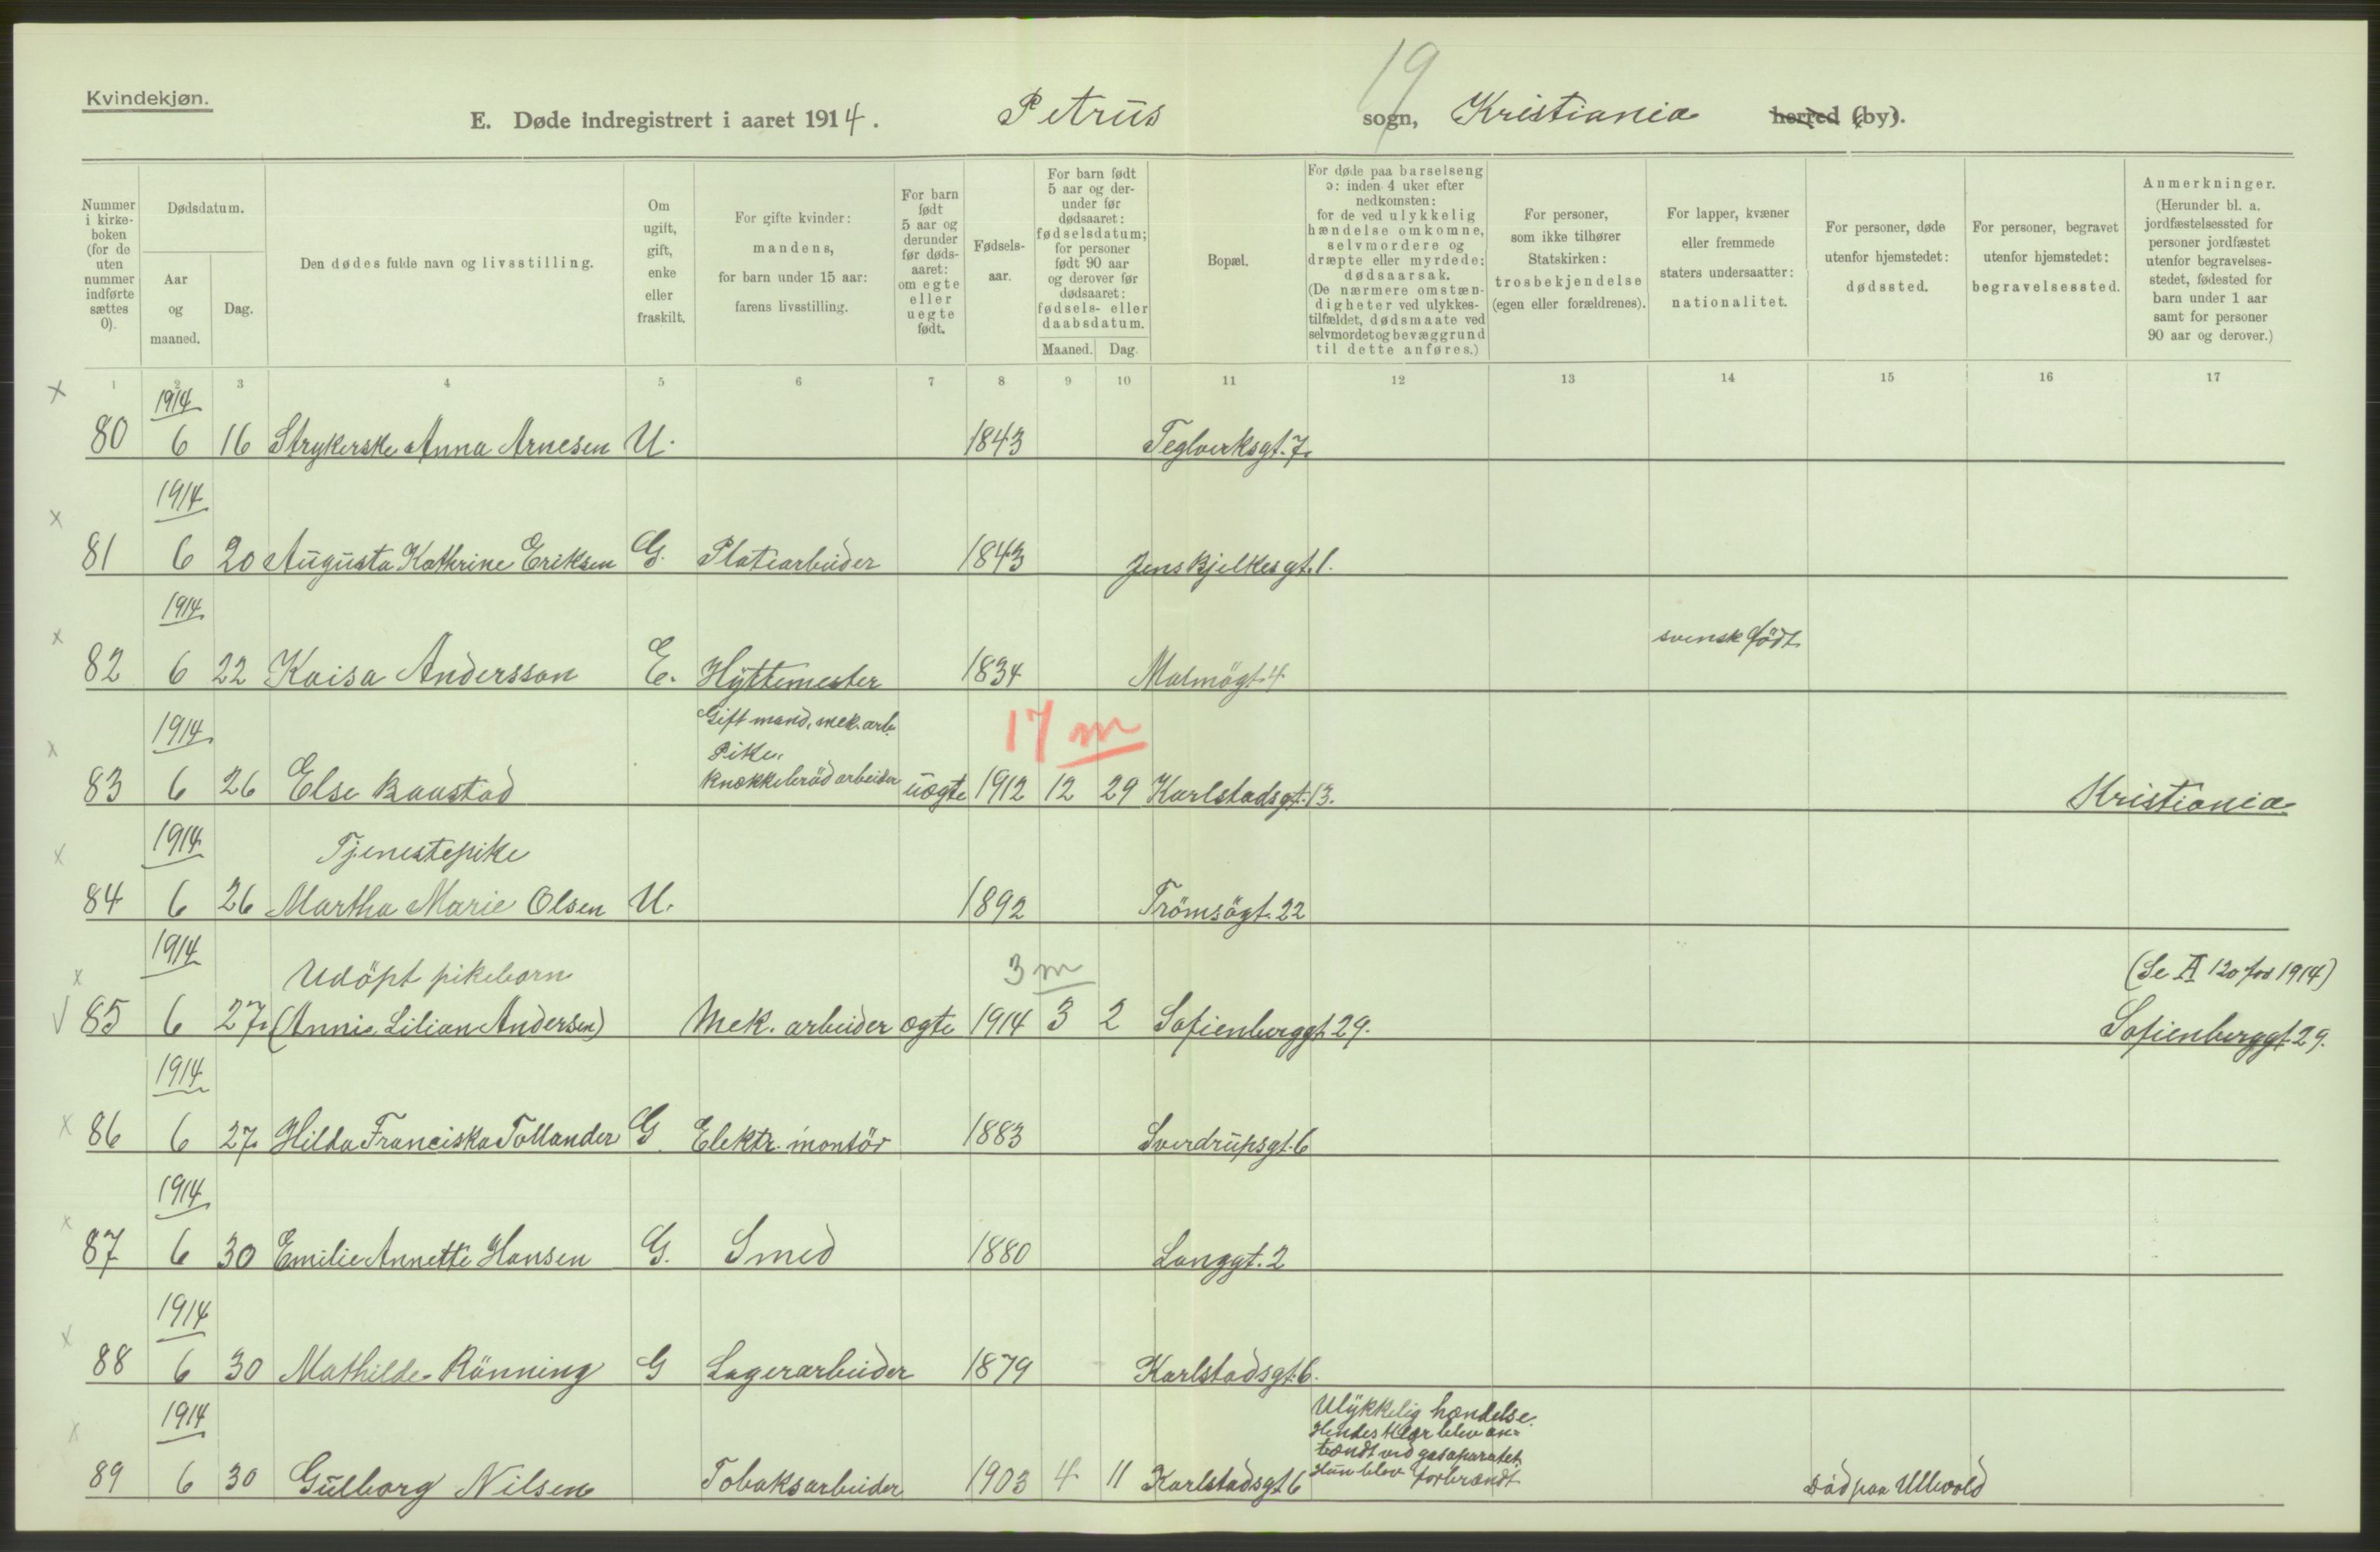 19
Kvindekjøn.
E. Døde indregistrert i aaret 1914. Petrus sogn, Kristiania herred (by).
Nummer i kirkeboken (for de uten nummer indførte sættes 0).
Dødsdatum.
Aar og maaned.
Dag.
Den dødes fulde navn og livsstilling.
Om ugift, gift, enke eller fraskilt.
For gifte kvinder: mandens, for barn under 15 aar: farens livsstilling.
For barn født 5 aar og derunder før dødsaaret: om egte eller uegte født.
Fødselsaar.
For barn født 5 aar og derunder før dødsaaret: fødselsdatum; for personer født 90 aar og derover før dødsaaret: fødsels- eller daabsdatum.
Maaned. Dag.
Bopæl.
For døde paa barselseng ɔ: inden 4 uker efter nedkomsten: for de ved ulykkelig hændelse omkomne, selvmordere og dræpte eller myrdede: dødsaarsak. (De nærmere omstændigheter ved ulykkestilfældet, dødsmaate ved selvmordet og bevæggrund til dette anføres.)
For personer, som ikke tilhører Statskirken: trosbekjendelse (egen eller forældrenes).
For lapper, kvæner eller fremmede staters undersaatter: nationalitet.
For personer, døde utenfor hjemstedet: dødssted.
For personer, begravet utenfor hjemstedet: begravelsessted.
Anmerkninger. (Herunder bl. a. jordfæstelsessted for personer jordfæstet utenfor begravelsesstedet, fødested for barn under 1 aar samt for personer 90 aar og derover.)
1 2 3 4 5 6 7 8 9 10 11 12 13 14 15 16 17
x 1914
80 6 16 Strykerske Anna Arnesen U. 1843 Teglverksgt. 7.
1914
x
81 6 20 Augusta Kathrine Eriksen G. Platearbeider 1843 Jens Bjelkesgt. 1.
1914
x svensk født
82 6 22 Kaisa Andersson E. Hyttemester 1834 Malmögt. 4
1914 Gift mand, mek. arb. 17 m
x Pike,
83 6 26 Else Baustad Knækkebröd arbeider uægte 1912 12 29 Karlstadsgt. 13. Kristiania
1914
x Tjenestepike
84 6 26 Martha Marie Olsen U. 1892 Tromsögt. 22
1914
x Udöpt pikebarn 3 m (Se A 120 for 1914)
√ 85 6 27. (Annie Lilian Andersen) Mek. arbeider ægte 1914 3 2 Sofienberggt. 29. Sofienberggt. 29.
1914
x 86 6 27. Hilda Franciska Tollander G. Elektr. montör 1883 Sverdrupsgt. 6
1914
x
87 6 30 Emilie Annette Hansen G. Smed 1880 Langgt. 2
1914
x
88 6 30 Mathilde Rönning G Lagerarbeider 1879 Karlstadsgt. 6.
1914 Ulykkelig hændelse.
x Hendes klær blev an-
tændt ved gasaparatet
89 6 30 Gulborg Nilsen Tobaksarbeider 1903 4 11 Karlstadsgt. 6 Hun blev forbrændt Död paa Ullevold